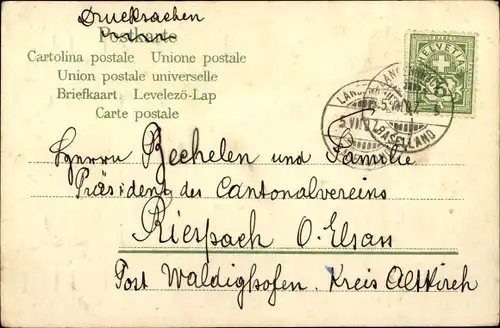 Drucksachen
Postkarte
Cartolina postale Unione postale
Union postale universelle
Briefkaart. Levelező-Lap
Carte postale
HELVETIA
BASELLAND
Herrn Bechelen und Familie
Präsident des Cantonalvereins
Riespach O. Elsau
Post Waldighofen. Kreis Altkirch